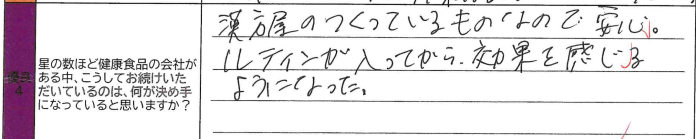 星の数ほど健康食品の会社が
ある中、こうしてお続けいた
だいているのは、何が決め手
になっていると思いますか？
4
漢方屋のつくっているものなので安心。
ルテインが入ってから、効果を感じる
ようになった。